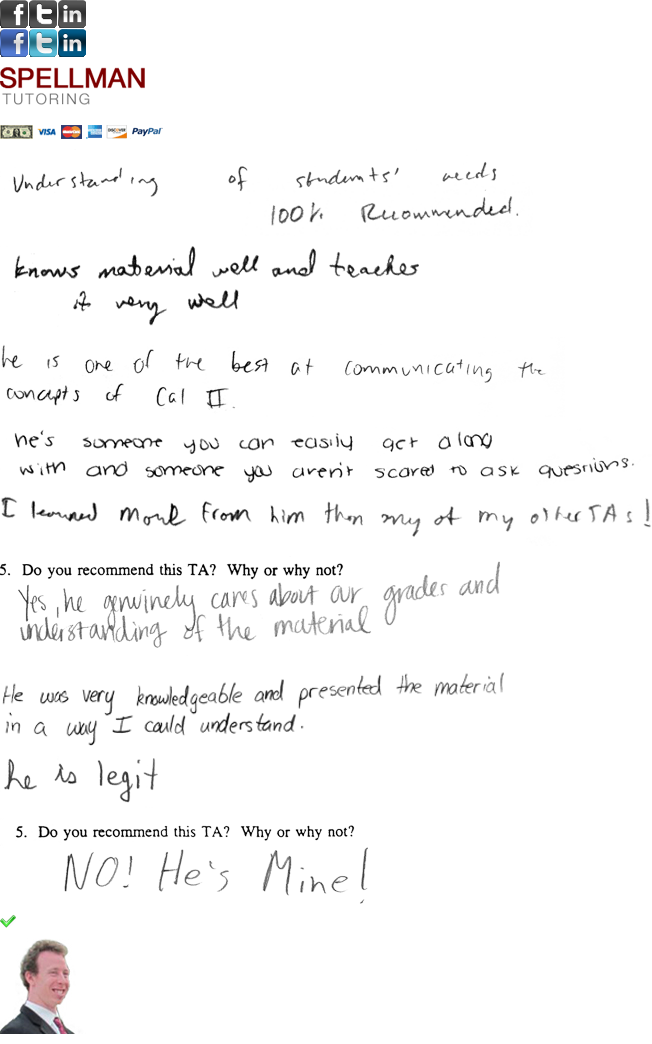 f t in
f t in
SPELLMAN
TUTORING
VISA MasterCard DISCOVER PayPal
Understanding of students' needs
100% Recommended.
knows material well and teaches
it very well
he is one of the best at communicating the
concepts of Cal II.
he's someone you can easily get along
with and someone you aren't scared to ask questions.
I learned more from him then any of my other TAs!
5. Do you recommend this TA? Why or why not?
Yes, he genuinely cares about our grades and
understanding of the material
He was very knowledgeable and presented the material
in a way I could understand.
he is legit
5. Do you recommend this TA? Why or why not?
NO! He's Mine!